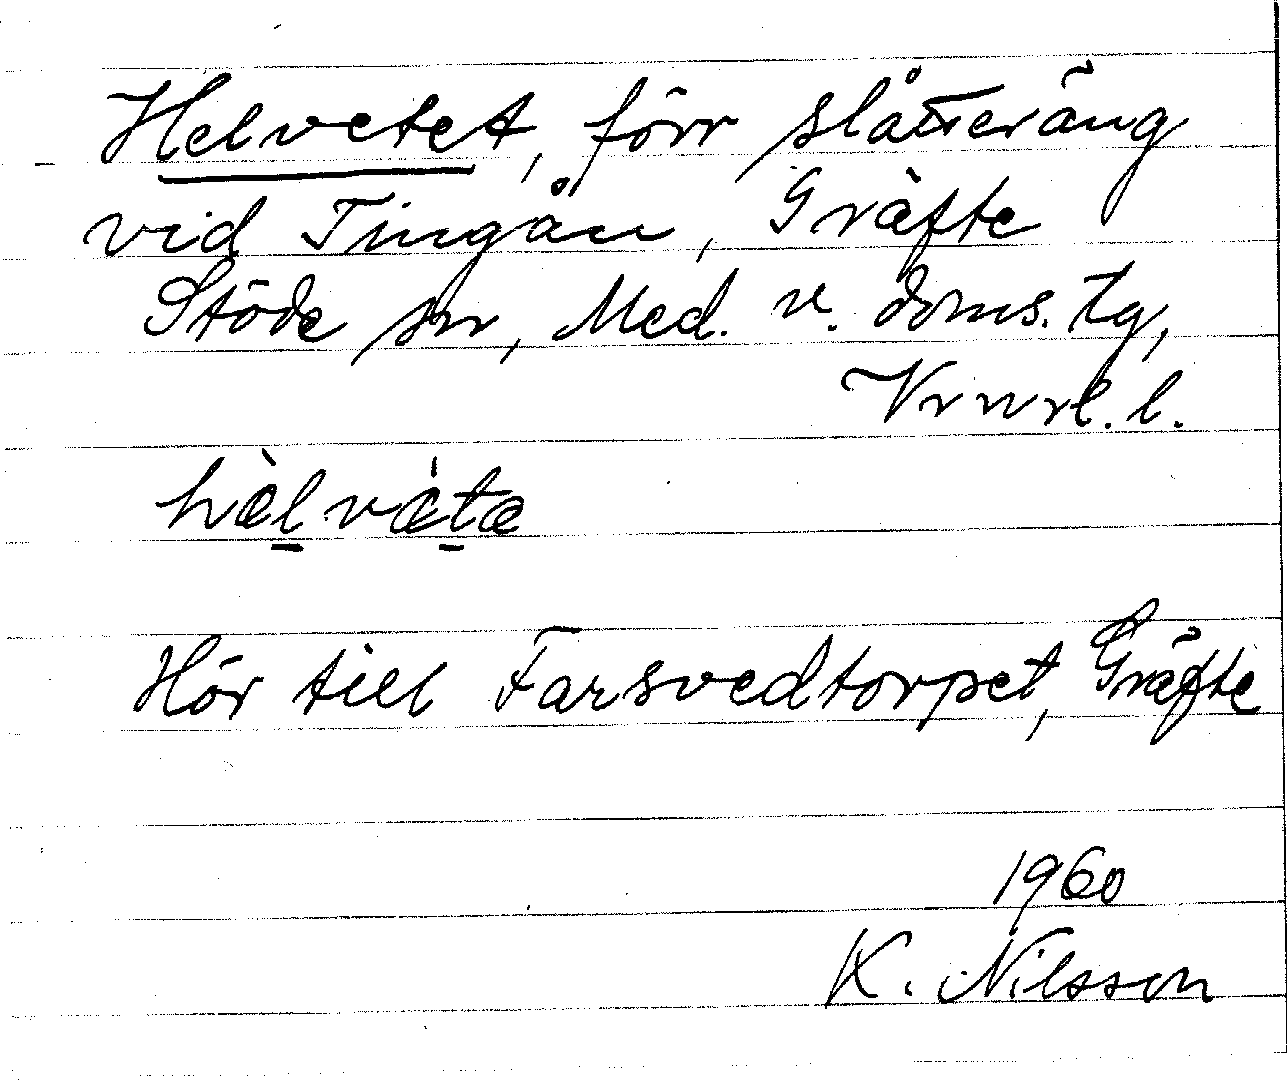 Helvetet, förr slåtteräng
vid Tingån, Gräfte
Stöde sn, Med. v. doms. tg,
Vrnrl. l.
hæ̀lvæ̀tæ
Hör till Farsvedtorpet, Gräfte
1960
K. Nilsson